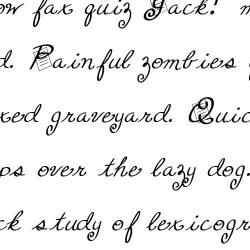 ow fax quiz Jack! m
d. Painful zombies
xed graveyard. Quic
ps over the lazy dog.
ck study of lexicogr